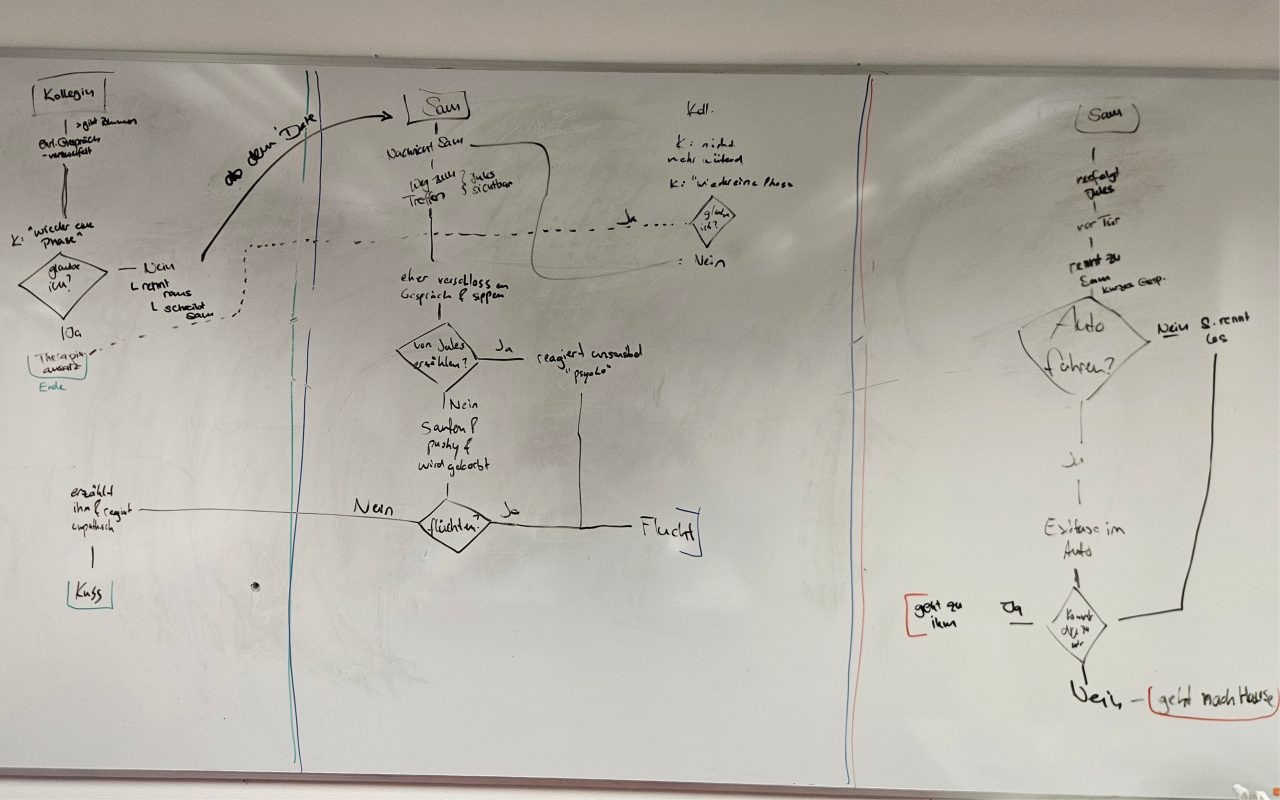 Kollegin
> gibt
ehrl. Gespräch
- verzweifelt
K: "wieder eine
Phase"
glaube
ich?
Nein
rennt
raus
schreibt
Sam
Ja
Therapie
ansatz
Ende
ab dem Date
Sam
Nachricht Sam
Weg zum
Treffen
Jules
sichtbar
eher verschlossen
Gespräch &
von Jules
erzählen?
Ja
reagiert unsensibel
"psycho"
Nein
&
pushy &
wird gekorbt
flüchten?
Ja
Flucht
Nein
erzählt
ihm & reagiert
empathisch
Kuss
Koll.
K: nicht
mehr wütend
K: "wieder eine Phase
Ja
ich?
: Nein
Sam
verfolgt
Jules
vor Tür
rennt zu
Sam
kurzes Gesp.
Auto
fahren?
Nein S. rennt
los
Ja
Ekstase im
Auto
kommst
du zu
mir
Ja
geht zu
ihm
Nein - geht nach Hause